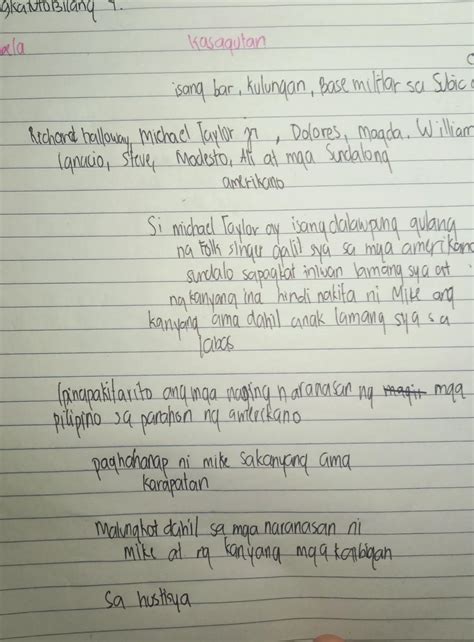 Bilang 4.
Kasagutan
isang bar, kulungan, Base militar sa Subic
Richard halloway, michael Taylor jr, Dolores, Magda, William
Ignacio, Steve, Modesto, Ali at mga Sundalong
amerikano
Si michael Taylor ay isang dalawpung gulang
na folk singer galit sya sa mga amerikano
sundalo sapagkat iniwan lamang sya at
ng kanyang ina hindi nakita ni Mike ang
kanyang ama dahil anak lamang sya sa
labas
Ipinapakita rito ang mga naging naranasan ng mga
pilipino sa panahon ng amerikano
paghahanap ni mike sakanyang ama
karapatan
malungkot dahil sa mga naranasan ni
mike at ng kanyang mga kaibigan
sa hustisya